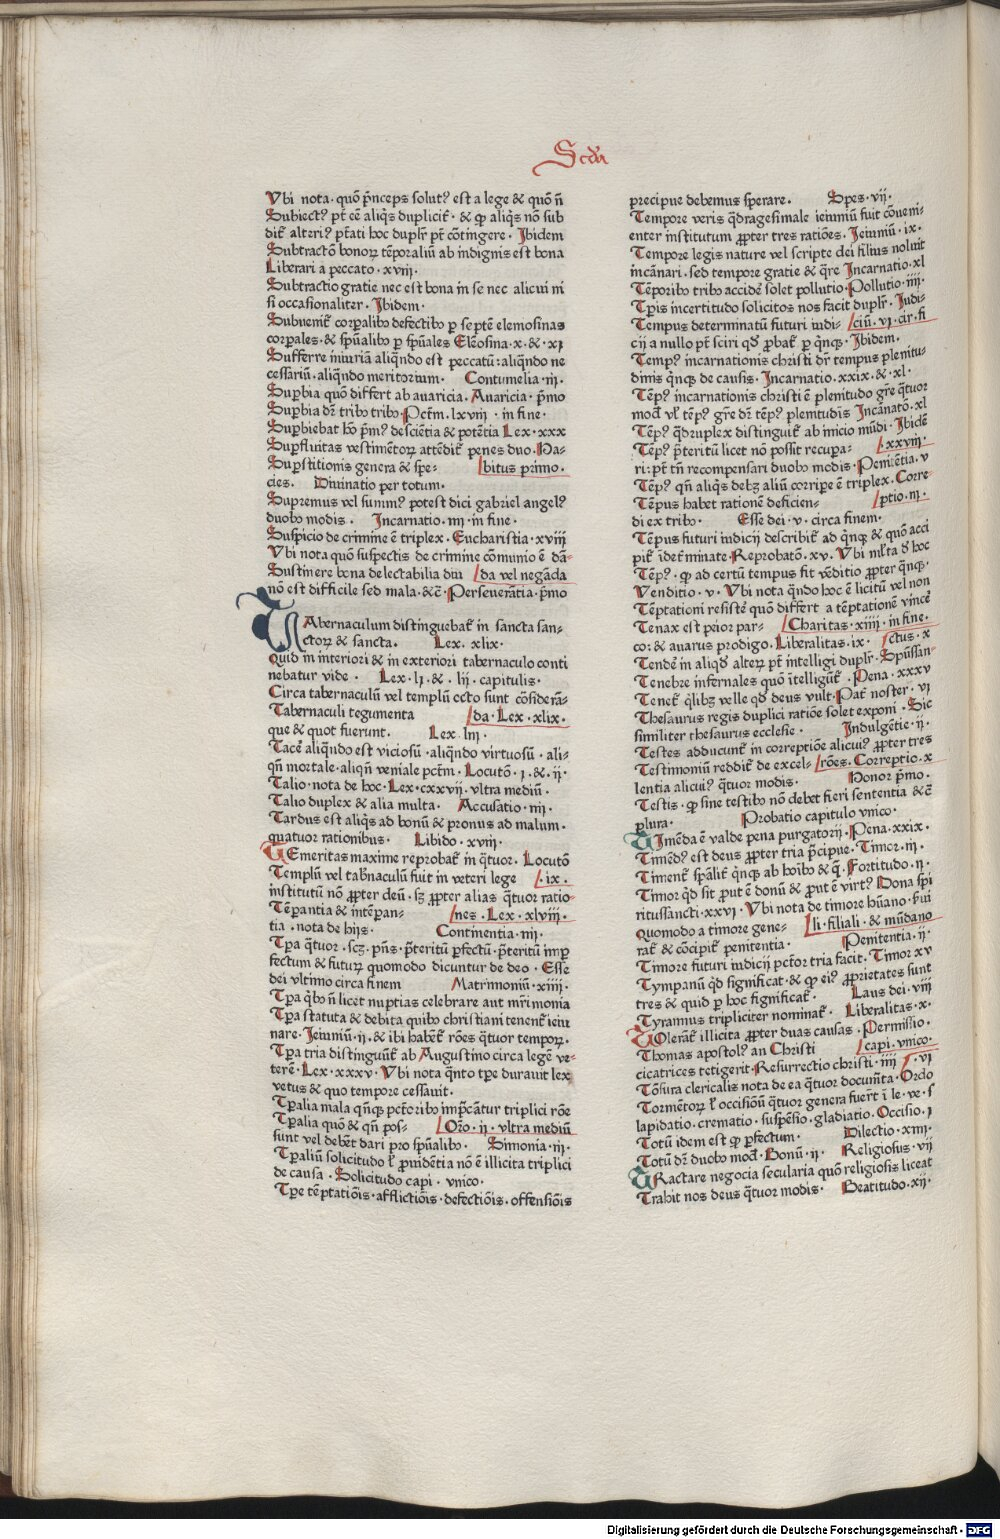 Scda
Vbi nota · quō p̄nceps solutꝰ est a lege & quō n̄
Subiectꝰ pt̄ cē aliqͥs dupliciť · & ꝙ aliqͥs nō sub
diť alteriꝰ p̄tati hoc duplr̄ pt̄ cōtingere · Ibidem
Subtractō bonoꝝ tēporaliū ab indignis est bona
Liberari a peccato · xviii ·
Subtractio gratie nec est bona in se nec alicui ni
si occasionaliter · Ibidem ·
Subueniť corꝑalibꝰ defectibꝰ ꝑ septē elemosinas
corꝑales · & sp̄ualibꝰ ꝑ sp̄uales Elēosina · x · & · xi
Sufferre iniuriā aliqn̄do est peccatū : aliqn̄do ne
cessariū · aliqn̄do meritorium · Contumelia · iii ·
Suꝑbia quō differt ab auaricia · Auaricia · p̄mo
Suꝑbia dr̄ tribꝰ tribꝰ · Pctm̄ · lxvii · in fine ·
Suꝑbiebat hō p̄mꝰ de sciētia & potētia Lex · xxx
Suꝑfluitas vestimētoꝝ attēdiť penes duo · Ha-
Suꝑstitionis genera & spe- bitus primo ·
cies · Diuinatio per totum ·
Supremus vel summꝰ potest dici gabriel angelꝰ
duobꝰ modis · Incarnatio · iiii · in fine ·
Suspicio de crimine ē triplex · Eucharistia · xviii
Vbi nota quō suspectis de crimine cōmunio ē dā-
Sustinere bona delectabilia diu da vel negāda
nō est difficile sed mala · &c̄ · Perseuerātia · p̄mo
TAbernaculum distinguebať in sancta san-
ctoꝝ & sancta · Lex · xlix ·
Quid in interiori & in exteriori tabernaculo conti
nebatur vide · Lex · li · & · lii · capitulis ·
Circa tabernaculū vel templū octo sunt cōsiderā-
Tabernaculi tegumenta da · Lex · xlix ·
que & quot fuerunt · Lex · liii ·
Tacē aliqn̄do est viciosū · aliqn̄do virtuosū · ali-
qn̄ mortale · aliqn̄ veniale pctm̄ · Locutō · i · & · ii ·
Talio · nota de hoc · Lex · cxxvii · vltra mediū ·
Talio duplex & alia multa · Accusatio · iiii ·
Tardus est aliqͥs ad bonū & pronus ad malum ·
quatuor rationibus · Libido · xviii ·
TEmeritas maxime reprobať in qͣtuor · Locutō
Templū vel tabn̄aculū fuit in veteri lege · ix ·
institutū nō ꝓpter deū · sꝫ ꝓpter alias qͣtuor ratio-
Tēꝑantia & intēꝑan- nes · Lex · xlviii ·
tia · nota de hijs · Continentia · iiii ·
Tꝑa qͣtuor · scꝫ · pn̄s · p̄teritū ꝑfectū · p̄teritū imꝑ
fectum & futuꝝ quomodo dicuntur de deo · Esse
dei vltimo circa finem Matrimoniū · xiiii ·
Tꝑa qͥbꝰ n̄ licet nuptias celebrare aut mr̄imonia
Tꝑa statuta & debita quibꝰ christiani tenenť ieiu
nare · Ieiuniū · ii · & ibi habēť rōes qͣtuor tempoꝝ ·
Tꝑa tria distinguūť ab Augustino circa legē ve-
terē · Lex · xxxv · Vbi nota qͣnto tꝑe durauit lex
vetus & quo tempore cessauit ·
Tꝑalia mala qͥnqꝫ pctōribꝰ imp̄cātur triplici rōe
Tꝑalia quō & qn̄ pos- Orō · ii · vltra mediū
sunt vel debēt dari pro sp̄ualibꝰ · Simonia · iii ·
Tꝑaliū solicitudo ł ꝓuidētia nō ē illicita triplici
de causa · Solicitudo capi · vnico ·
Tꝑe tēptatiōis · afflictiōis · defectiōis · offensiōis
precipue debemus sperare · Spes · vii ·
Tempore veris qͣdragesimale ieiuniū fuit cōueni-
enter institutum ꝓpter tres ratiōes · Ieiuniū · ix ·
Tempore legis nature vel scripte dei filius noluit
incānari · sed tempore gratie & qͣre Incarnatio · xl
Tēporibꝰ tribꝰ accidē solet pollutio · Pollutio · iiii ·
Tꝑis incertitudo solicitos nos facit duplr̄ · Iudi-
Tempus determinatū futuri iudi- ciū · vi · cir · fi
cij a nullo pt̄ sciri qđ ꝓbať ꝑ qͥnqꝫ · Ibidem ·
Tempꝰ incarnationis christi dr̄ tempus plenitu-
dinis qͥnqꝫ de causis · Incarnatio · xxix · & · xl ·
Tēpꝰ incarnationis christi ē plenitudo gr̄e qͣtuor
moď vł tēpꝰ gr̄e dr̄ tēpꝰ plenitudīs Incānatō · xl
Tēpꝰ qͣdruplex distinguiť ab inicio mūdi · Ibidē
Tēpꝰ p̄teritū licet nō possit recupa- xxviii ·
ri : pt̄ tn̄ recompensari duobꝰ modis · Penitētia · v
Tēpꝰ qn̄ aliqͥs debꝫ aliū corriꝑe ē triplex · Corre
Tēpus habet rationē deficien- ptio · iii ·
di ex tribꝰ · Esse dei · v · circa finem ·
Tēpus futuri iudicij describiť ad qͥnqꝫ & quō acci
Tēpꝰ · ꝙ ad certū tempus fit vēditio ꝓpter qͥnqꝫ ·
Venditio · v · Vbi nota qn̄do hoc ē licitū vel non
Tēptationi resistē quō differt a tēptatione vīncē
Tenax est peior par- Charitas · xiiii · in fine ·
co : & auarus prodigo · Liberalitas · ix · ctus · x
Tendē in aliqđ alteꝝ pt̄ intelligi duplr̄ · Spūssan-
Tenebre infernales quō ītelligūť · Pena · xxxv
Teneť qͥlibꝫ velle qđ deus vult · Pať noster · vi
Thesaurus regis duplici ratiōe solet exponi · Sic
similiter thesaurus ecclesie · Indulgētie · ii ·
Testes adducunť in correptiōe alicuiꝰ ꝓpter tres
Testimoniū reddiť de excel- rōes · Correptio · x
lentia alicuiꝰ qͣtuor modis · Honor p̄mo ·
Testis · ꝙ sine testibꝰ nō debet fieri sententia &c̄
plura · Probatio capitulo vnico ·
TImēda ē valde pena purgatorij · Pena · xxix ·
Timēdꝰ est deus ꝓpter tria p̄cipue · Timor · iii ·
Timenť sp̄aliť qͥnqꝫ ab hoībꝰ & qͣ · Fortitudo · ii ·
Timor qͥd sit ꝓut ē donū & ꝓut ē virtꝰ Dona spi
ritussancti · xxvi · Vbi nota de timore hūano · sui
quomodo a timore gene- li · filiali · & mūdano
rať & cōcipiť penitentia · Penitentia · ii ·
Timore futuri iudicij pctōr tria facit · Timor xv
Tympanū qͥd significat · & ꝙ eiꝰ ꝓprietates sunt
tres & quid ꝑ hoc significať · Laus dei · viii
Tyrannus tripliciter nominať · Liberalitas · x ·
TOlerāť illicita ꝓpter duas causas · Permissio ·
Thomas apostolꝰ an Christi capi · vnico ·
cicatrices tetigerit · Resurrectio christi · iiii · vi
Tōsura clericalis nota de ea qͣtuor documēta · Ordo
Tormētoꝝ ł occisiōū qͣtuor genera fuerūt ī le · ve · s
lapidatio · crematio · suspēsio · gladiatio · Occisio · i
Totū idem est ꝙ ꝑfectum · Dilectio · xiiii ·
Totū dr̄ duobꝰ moď · Bonū · ii · Religiosus · vii
TRactare negocia secularia quō religiosis liceat
Trahit nos deus qͣtuor modis · Beatitudo · xii ·
Digitalisierung gefördert durch die Deutsche Forschungsgemeinschaft - DFG